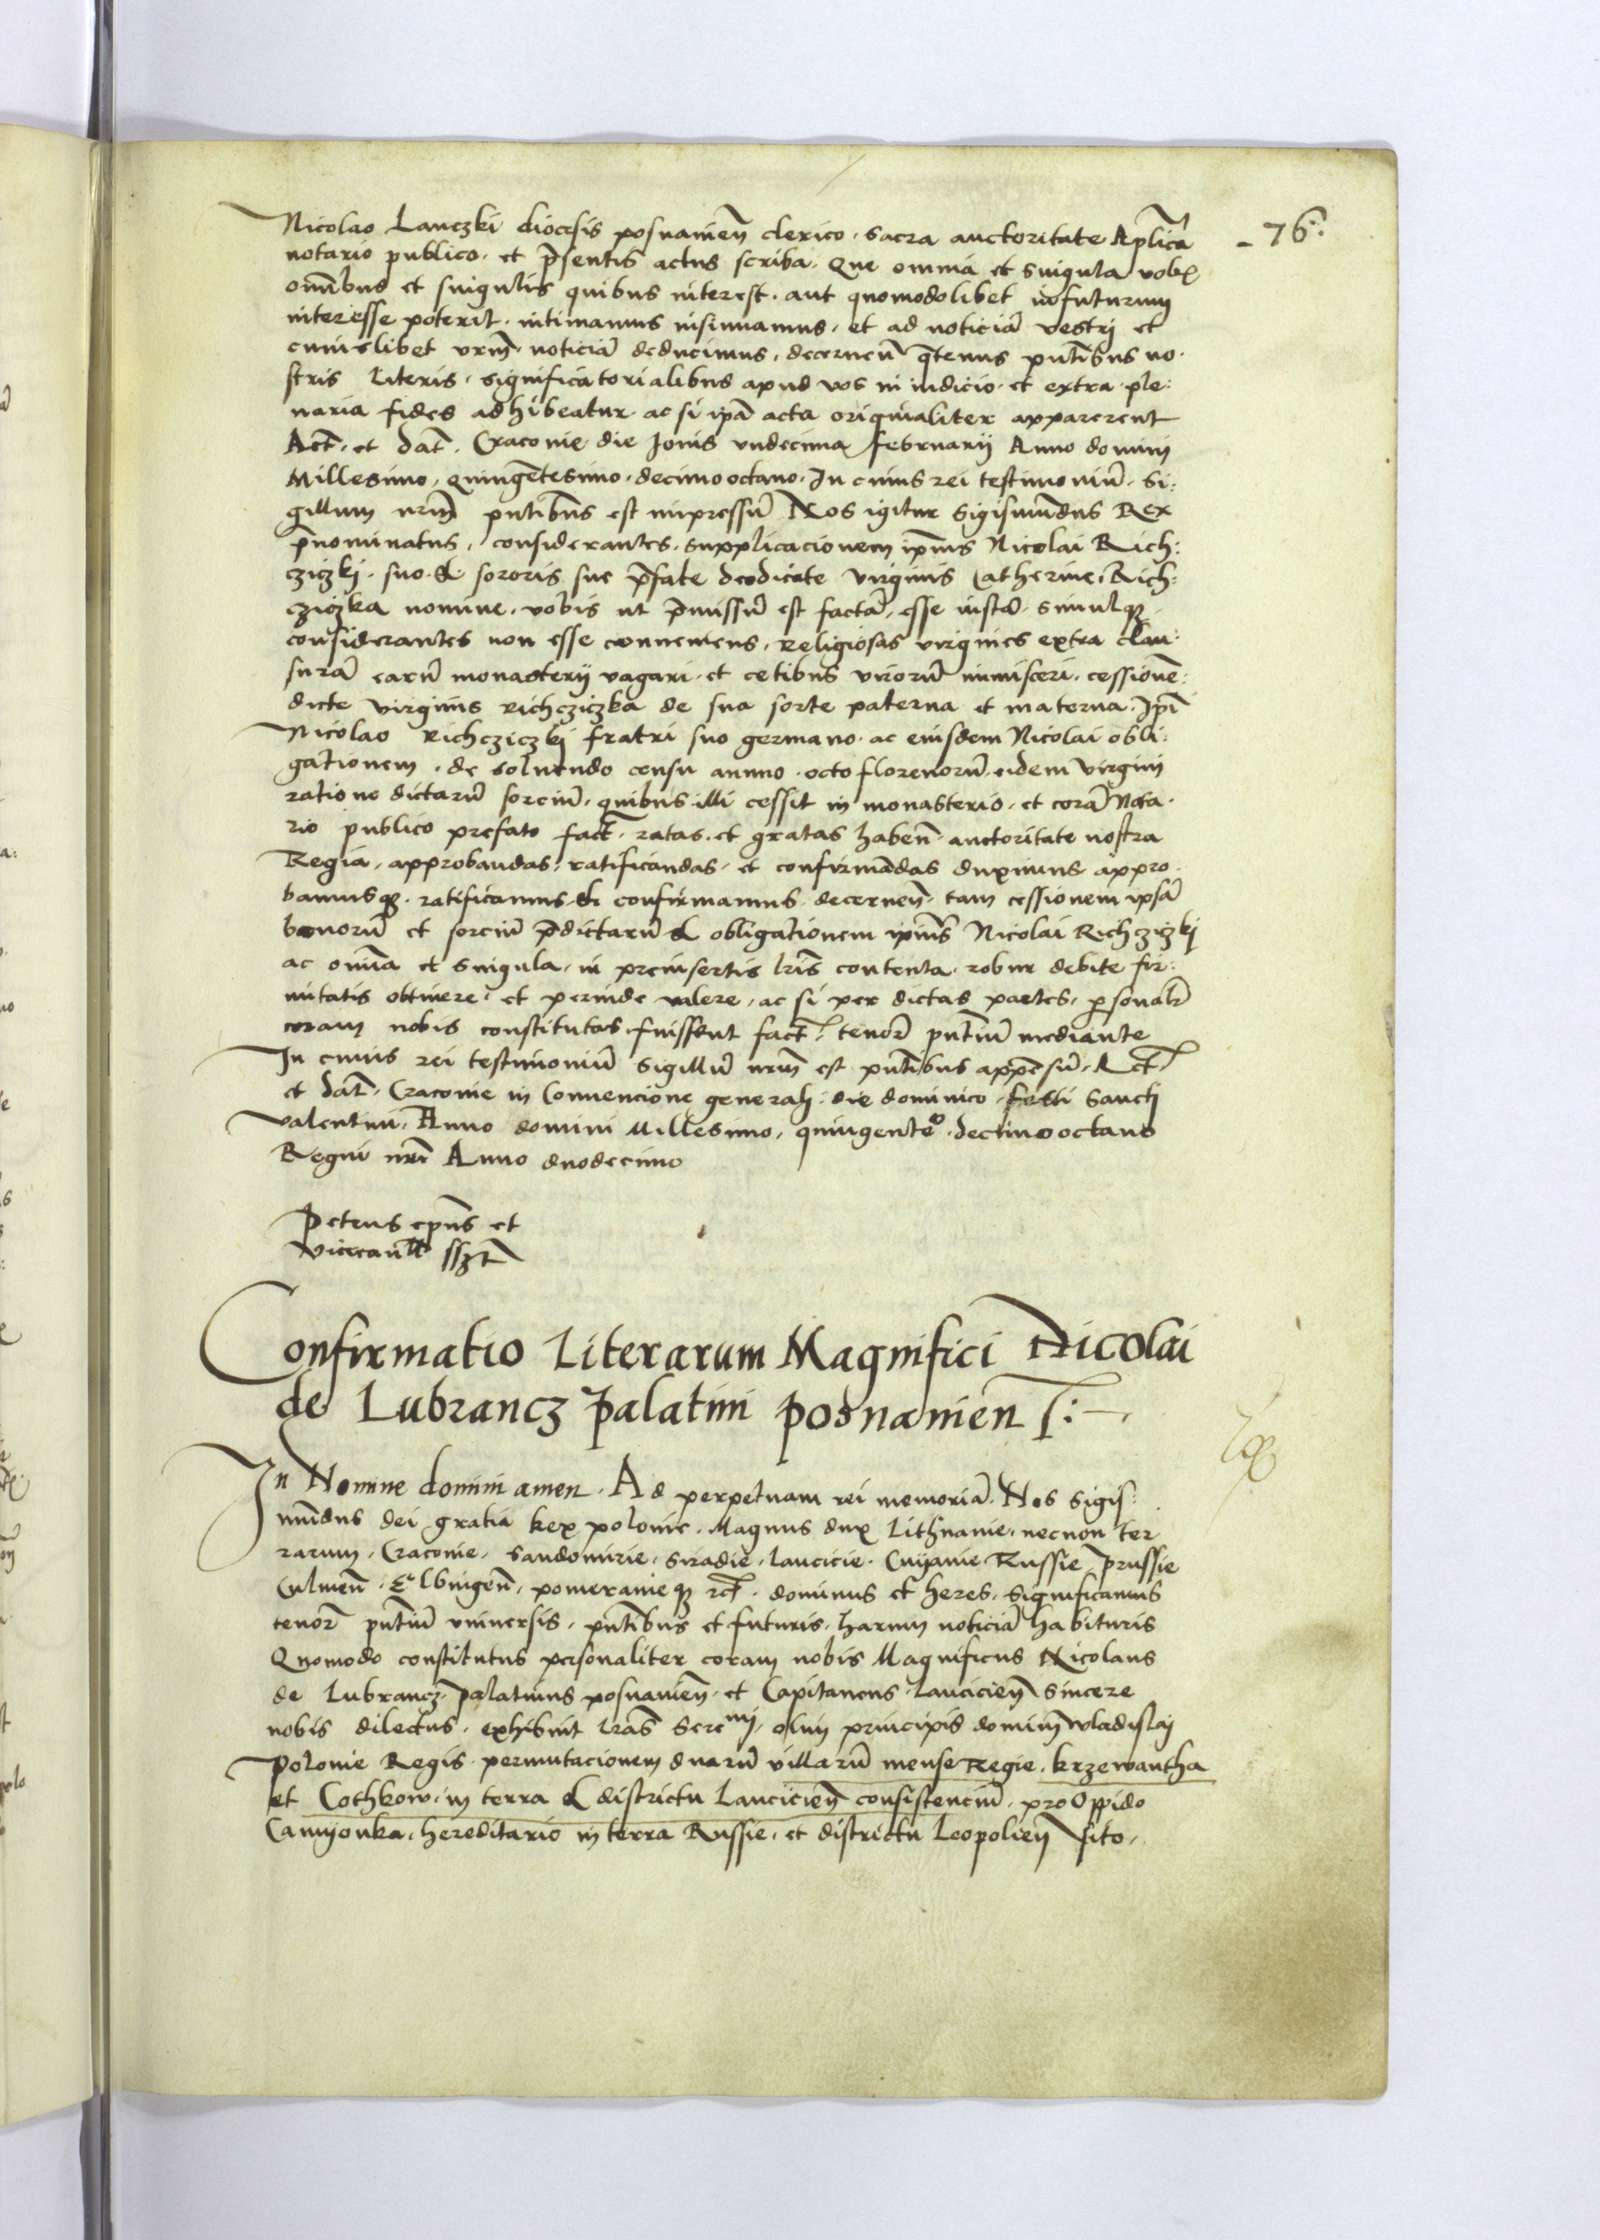 - 76 :
Nicolao Lanczki diocesis posnanien̄ clerico · sacra auctoritate Aplica
notario publico · et p̄sentis actus scriba · Que omnia et singula vob
om̄ibus et singulis quibus interest · aut quomodolibet in futurum
interesse poterit · intimamus insinuamus · et ad noticiā vestri et
cuiuslibet vrm̄ noticiā deducimus · decernen̄ q̄tenus pn̄tibus no ·
stris literis · significatorialibus apud vos in iudicio · et extra · ple :
naria fides adhibeatur · ac si ip̄a acta originaliter apparerent
Act̄ · et dat̄ · Cracovie die Iovis undecima februarii Anno domini
Millesimo · quingētesimo · decimo octavo · In cuius rei testimoniū · si :
gillum nrm̄ pn̄tibus est impressū Nos igitur Sigismūdus Rex
p̄nominatus · considerantes · supplicacionem ip̄ius Nicolai Rich :
cziczki · suo · & sororis sue p̄fate deodicate virginis Catherine Rich :
cziczka nomine · nobis ut p̄missū est factā · esse iustā · simulq₃
considerantes non esse conveniens · religiosas virgines extra clau :
surā earū monasterii vagari · et cetibus virorū immisceri · cessionē :
dicte virginis richcziczka de sua sorte paterna et materna · Ip̄i
Nicolao richcziczkj fratri suo germano · ac eiusdem Nicolai obli :
gationem · de solvendo censu annuo · octo florenorū · eidem virgini
ratione dictarū sorciū · quibus illi cessit in monasterio · et corā Nota ·
rio publico prefato fact̄ · ratas · et gratas haben̄ · auctoritate nostra
Regia · approbandas · ratificandas · et confirmādas duximus appro ·
bamusq₃ · ratificamus & confirmamus · decernen̄ · tam cessionem ipsā
bonorū et sorciū p̄dictarū & obligationem ip̄ius Nicolai Richcziczkj
ac om̄ia et singula · in preinsertis lr̄is contenta · robur debite fir :
mitatis obtinere · et perinde valere · ac si per dictas partes · p̱sonalr̄
coram nobis constitutas fuissent fact̄ · tenor̄ pn̄tiū mediante
In cuius rei testimoniū sigillū nrm̄ est pn̄tibus appēsū · Act̄
et dat̄ · Cracovie in Convencione generali · die dominico · festi Sancti
Valentini · Anno domini Millesimo · quingenteᵒ · decimo octavo
Regni nr̄i Anno duodecimo
Petrus ep̄us et
vicecan̄ll sszt
Confirmatio Literarum Magnifici Nicolai
de Lubrancz Palatini Posnanien̄ : —
In Nomine domini amen · Ad perpetuam rei memoriā · Nos Sigis ·
mūdus dei gratia Rex polonie · Magnus dux Lithuanie · necnon ter
rarum · Cracovie · Sandomirie · Siradie · Lancicie · Cuyavie Russie Prussie
Culmen̄ · Elbingen̄ · pomeranieq₃ rc̄ · dominus et heres · significamus
tenor̄ pn̄tiū universis · pn̄tibus et futuris · harum noticiā habituris
Quomodo constitutus personaliter coram nobis Magnificus Nicolaus
de Lubrancz · Palatinus posnanien̄ · et Capitaneus · Lancicien̄ sincere
nobis dilectus · exhibuit lr̄as Sereᵐⁱ · olim principis domini Wladislaj
Polonie Regis · permutacionem duarū villarū mense Regie · krzewantha
et Cothkow · in terra & districtu Lancicien̄ consistenciū · pro Oppido
Camyonka · hereditario in terra Russie · et districtu Leopolien̄ sito ·